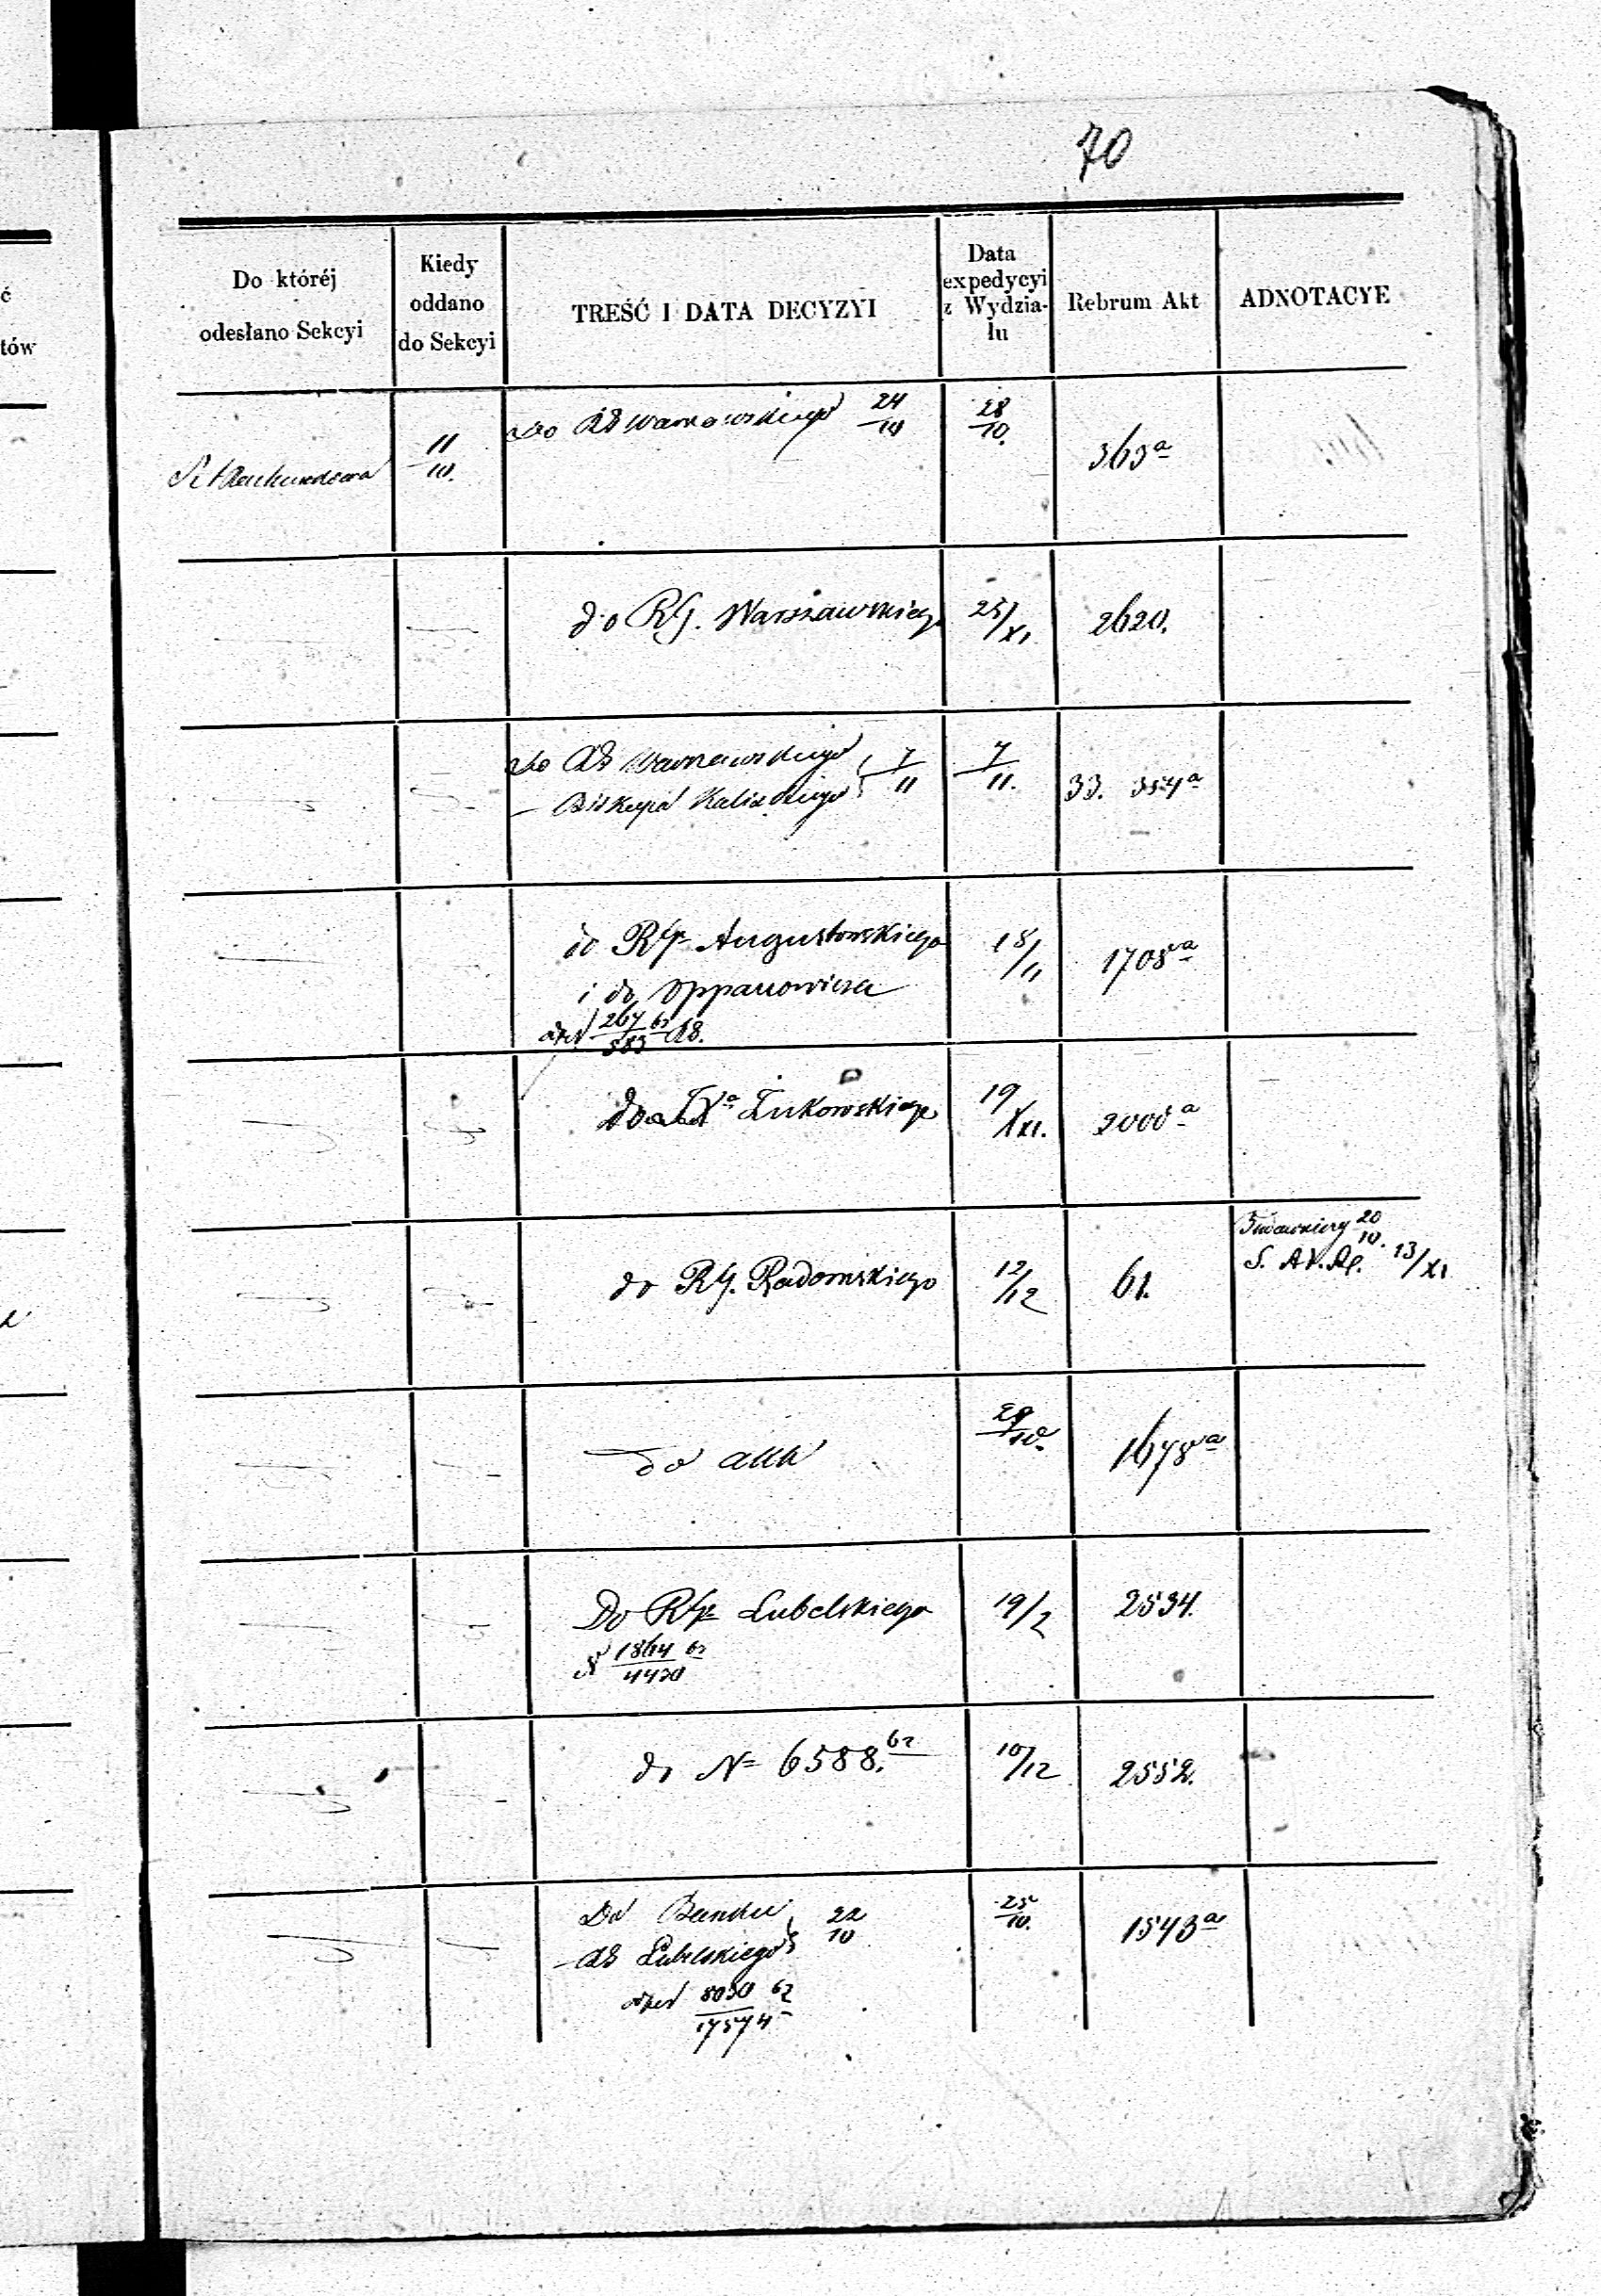 70
Do któréj
odesłano Sekcyi
Kiedy
oddano
do Sekcyi
TREŚĆ I DATA DECYZYI
Data
expedycyi
z Wydzia-
łu
Rebrum Akt
ADNOTACYE
ć
tów
11/10.
do RG Warszawskiego 24/10
28/10.
363a
do RG. Warszawskiego
25/XI.
2620.
do RG Warszawskiego 7/11
— Biskupa Kaliskiego
7/11.
33. 354a
do RGo Augustowskiego
i do Oppanowicza
267 62/583
18/11
1708a
do Łukowskiego
19/XI.
2000a
do RG. Radomskiego
12/12
61.
20/10.
13/XI
do akt
29/10
1678a
Do RGo Lubelskiego
N 1864 62/4430
19/2
2534.
do No 6588. 62
10/12
2552.
Do Banku 22/10
— RG Lubelskiego
8030 62/17574
25/10.
1543a